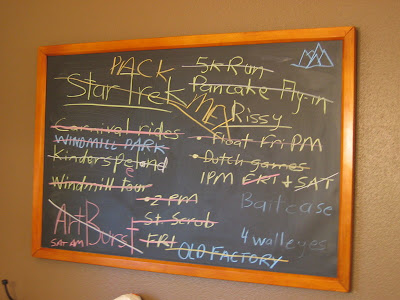 PACK
5K Run
Star Trek
Pancake Fly-in
Rissy
Carnival rides
WINDMILL PARK
Kinderspeland
Windmill tour
• Float Fri PM
• Dutch games
1PM FRI + SAT
• 2 PM
Baitcase
Art Burst
SAT AM
St. Scrub
FRI
OLD FACTORY
4 walleyes